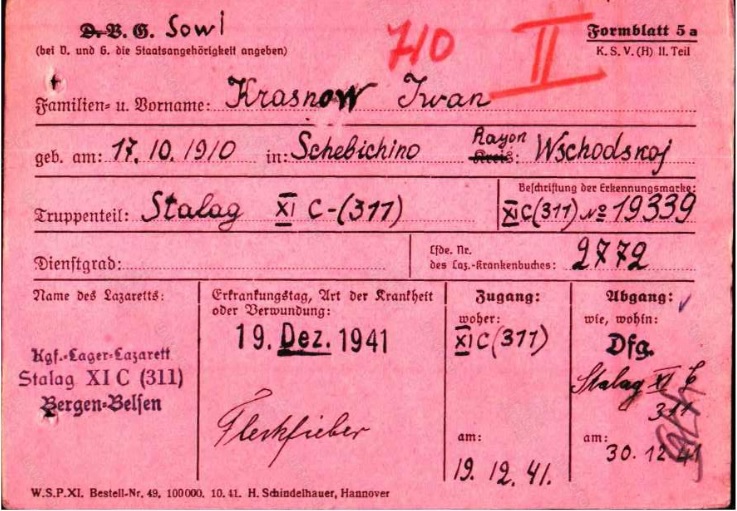 D. V. G. Sowi
Formblatt 5a
(bei V. und G. die Staatsangehörigkeit angeben)
K. S. V. (H) II. Teil
710
II
Familien- u. Vorname: Krasnow Iwan
geb. am: 17. 10. 1910 in: Schebichino Rayon Kreis: Wschodskoj
Beschriftung der Erkennungsmarke:
Truppenteil: Stalag XI C-(311) XI C (311) № 19339
Dienstgrad:
Lfde. Nr.
des Laz.-Krankenbuches: 2772
Name des Lazaretts:
Kgf.-Lager-Lazarett
Stalag XI C (311)
Bergen-Belsen
Erkrankungstag, Art der Krankheit
oder Verwundung:
19. Dez. 1941
Fleckfieber
Zugang:
woher:
XI C (311)
am:
19. 12. 41.
Abgang:
wie, wohin:
Dfg.
Stalag XI C
311
am:
30. 12 41
W.S.P.XI. Bestell-Nr. 49, 100000. 10. 41. H. Schindelhauer, Hannover